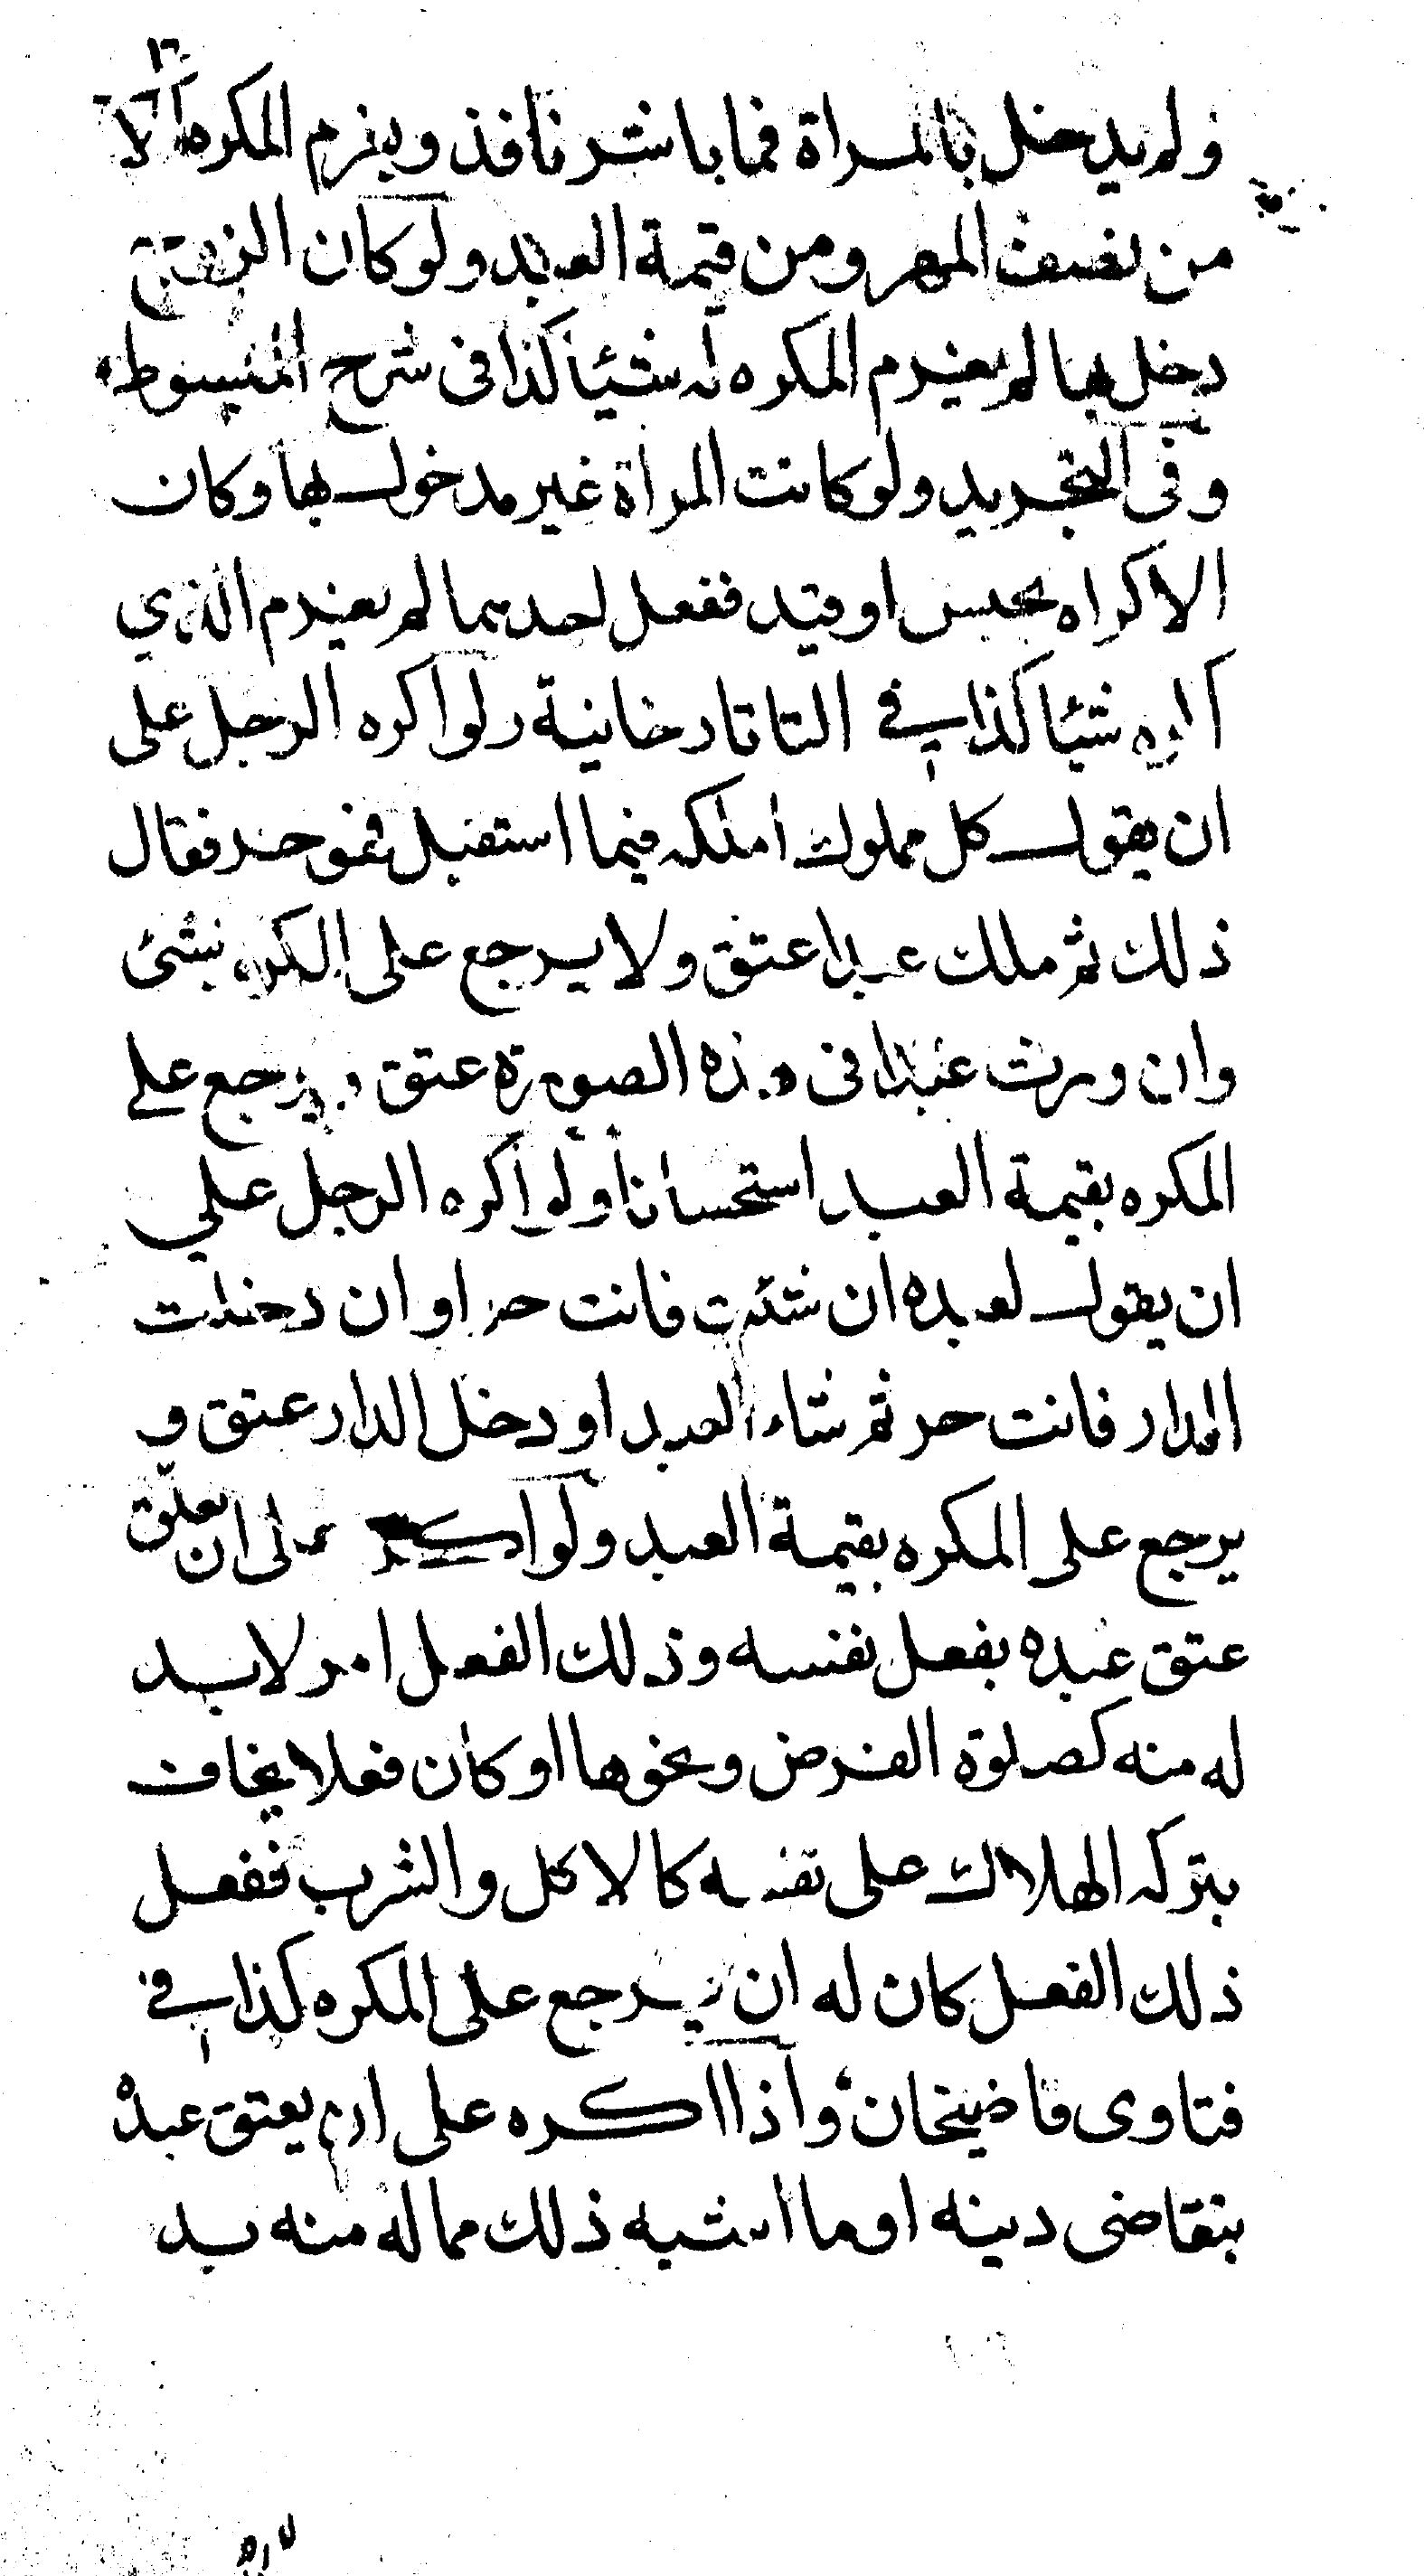 ولم يدخل بالمراة فما باشر نافذ ويغرم المكره الا
من نصف المهر ومن قيمة العبد ولو كان الزوج
دخل بها لم يغرم المكره له شيئا كذا في شرح المبسوط
وفي التجريد ولو كانت المراة غير مدخول بها وكان
الاكراه بحبس او قيد ففعل احدهما لم يغرم الذي
اكره شيئا كذا في التاتارخانية ولو اكره الرجل على
ان يقول كل مملوك املكه فيما استقبل فهو حر فقال
ذلك ثم ملك عبدا عتق ولا يرجع على المكره بشئ
وان ورث عبدا في هذه الصورة عتق ويرجع على
المكره بقيمة العبد استحسانا ولو اكره الرجل علي
ان يقول لعبده ان شئت فانت حر او ان دخلت
الدار فانت حر ثم شاء العبد او دخل الدار عتق و
يرجع على المكره بقيمة العبد ولو اكره على ان يعلق
عتق عبده بفعل نفسه وذلك الفعل امر لا بد
له منه كصلوة الفرض ونحوها او كان فعلا يخاف
بتركه الهلاك على نفسه كالاكل والشرب ففعل
ذلك الفعل كان له ان يرجع على المكره كذا في
فتاوى قاضيخان واذا اكره على ان يعتق عبده
بتقاضى دينه او ما اشبه ذلك مما له منه بد